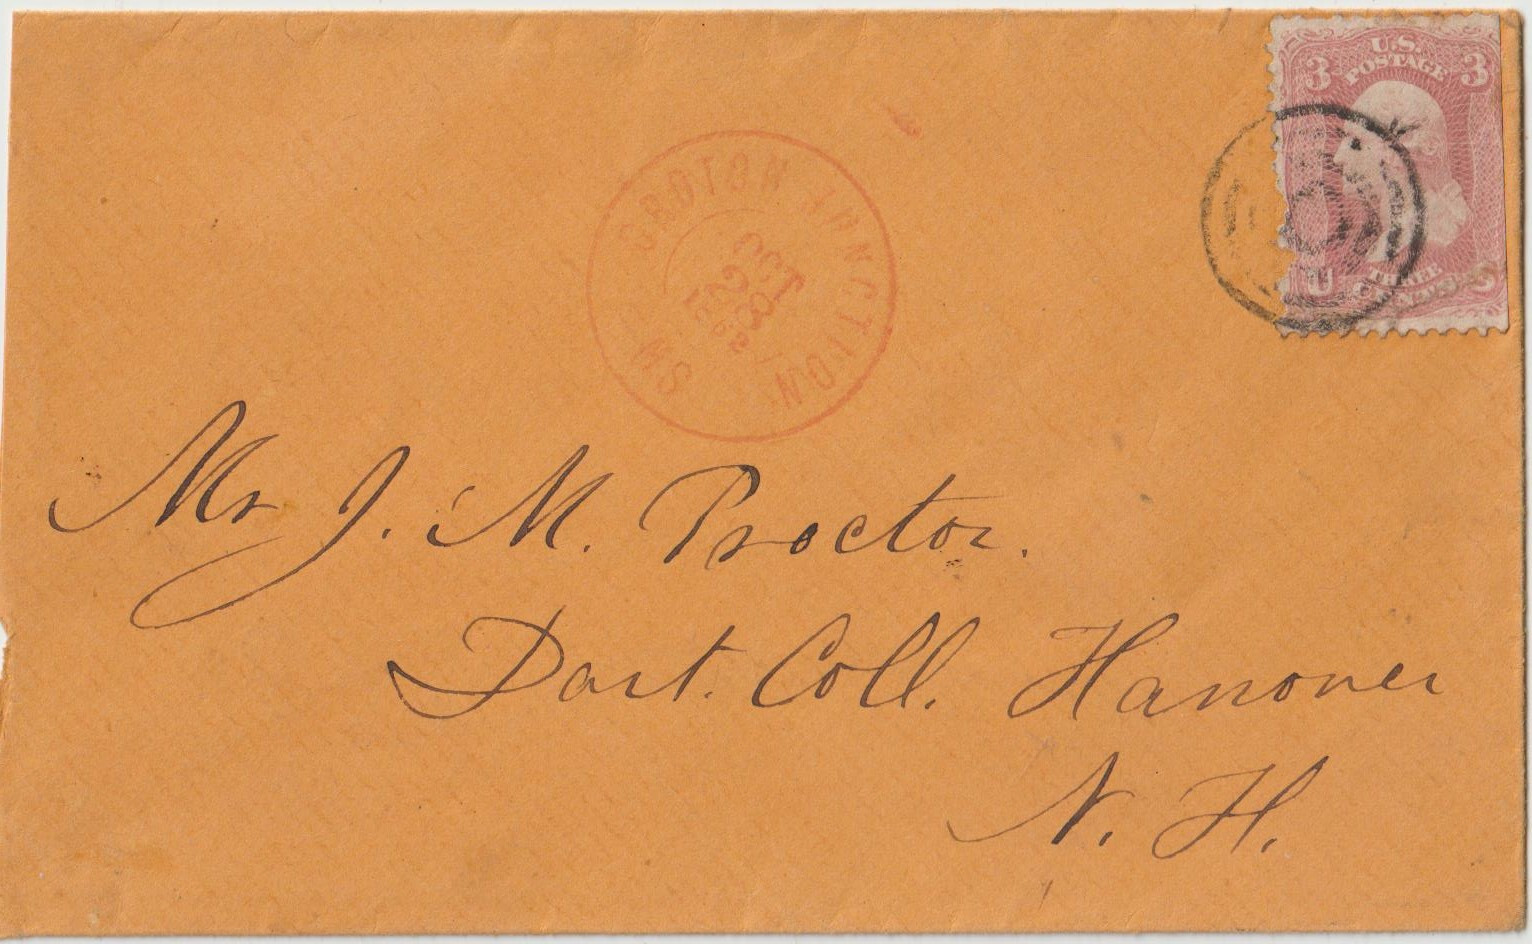 U.S.
POSTAGE
3 3
THREE
CENTS
U S
GROTON JUNCTION
MS
Mr J. M. Proctor.
Dart. Coll. Hanover
N. H.